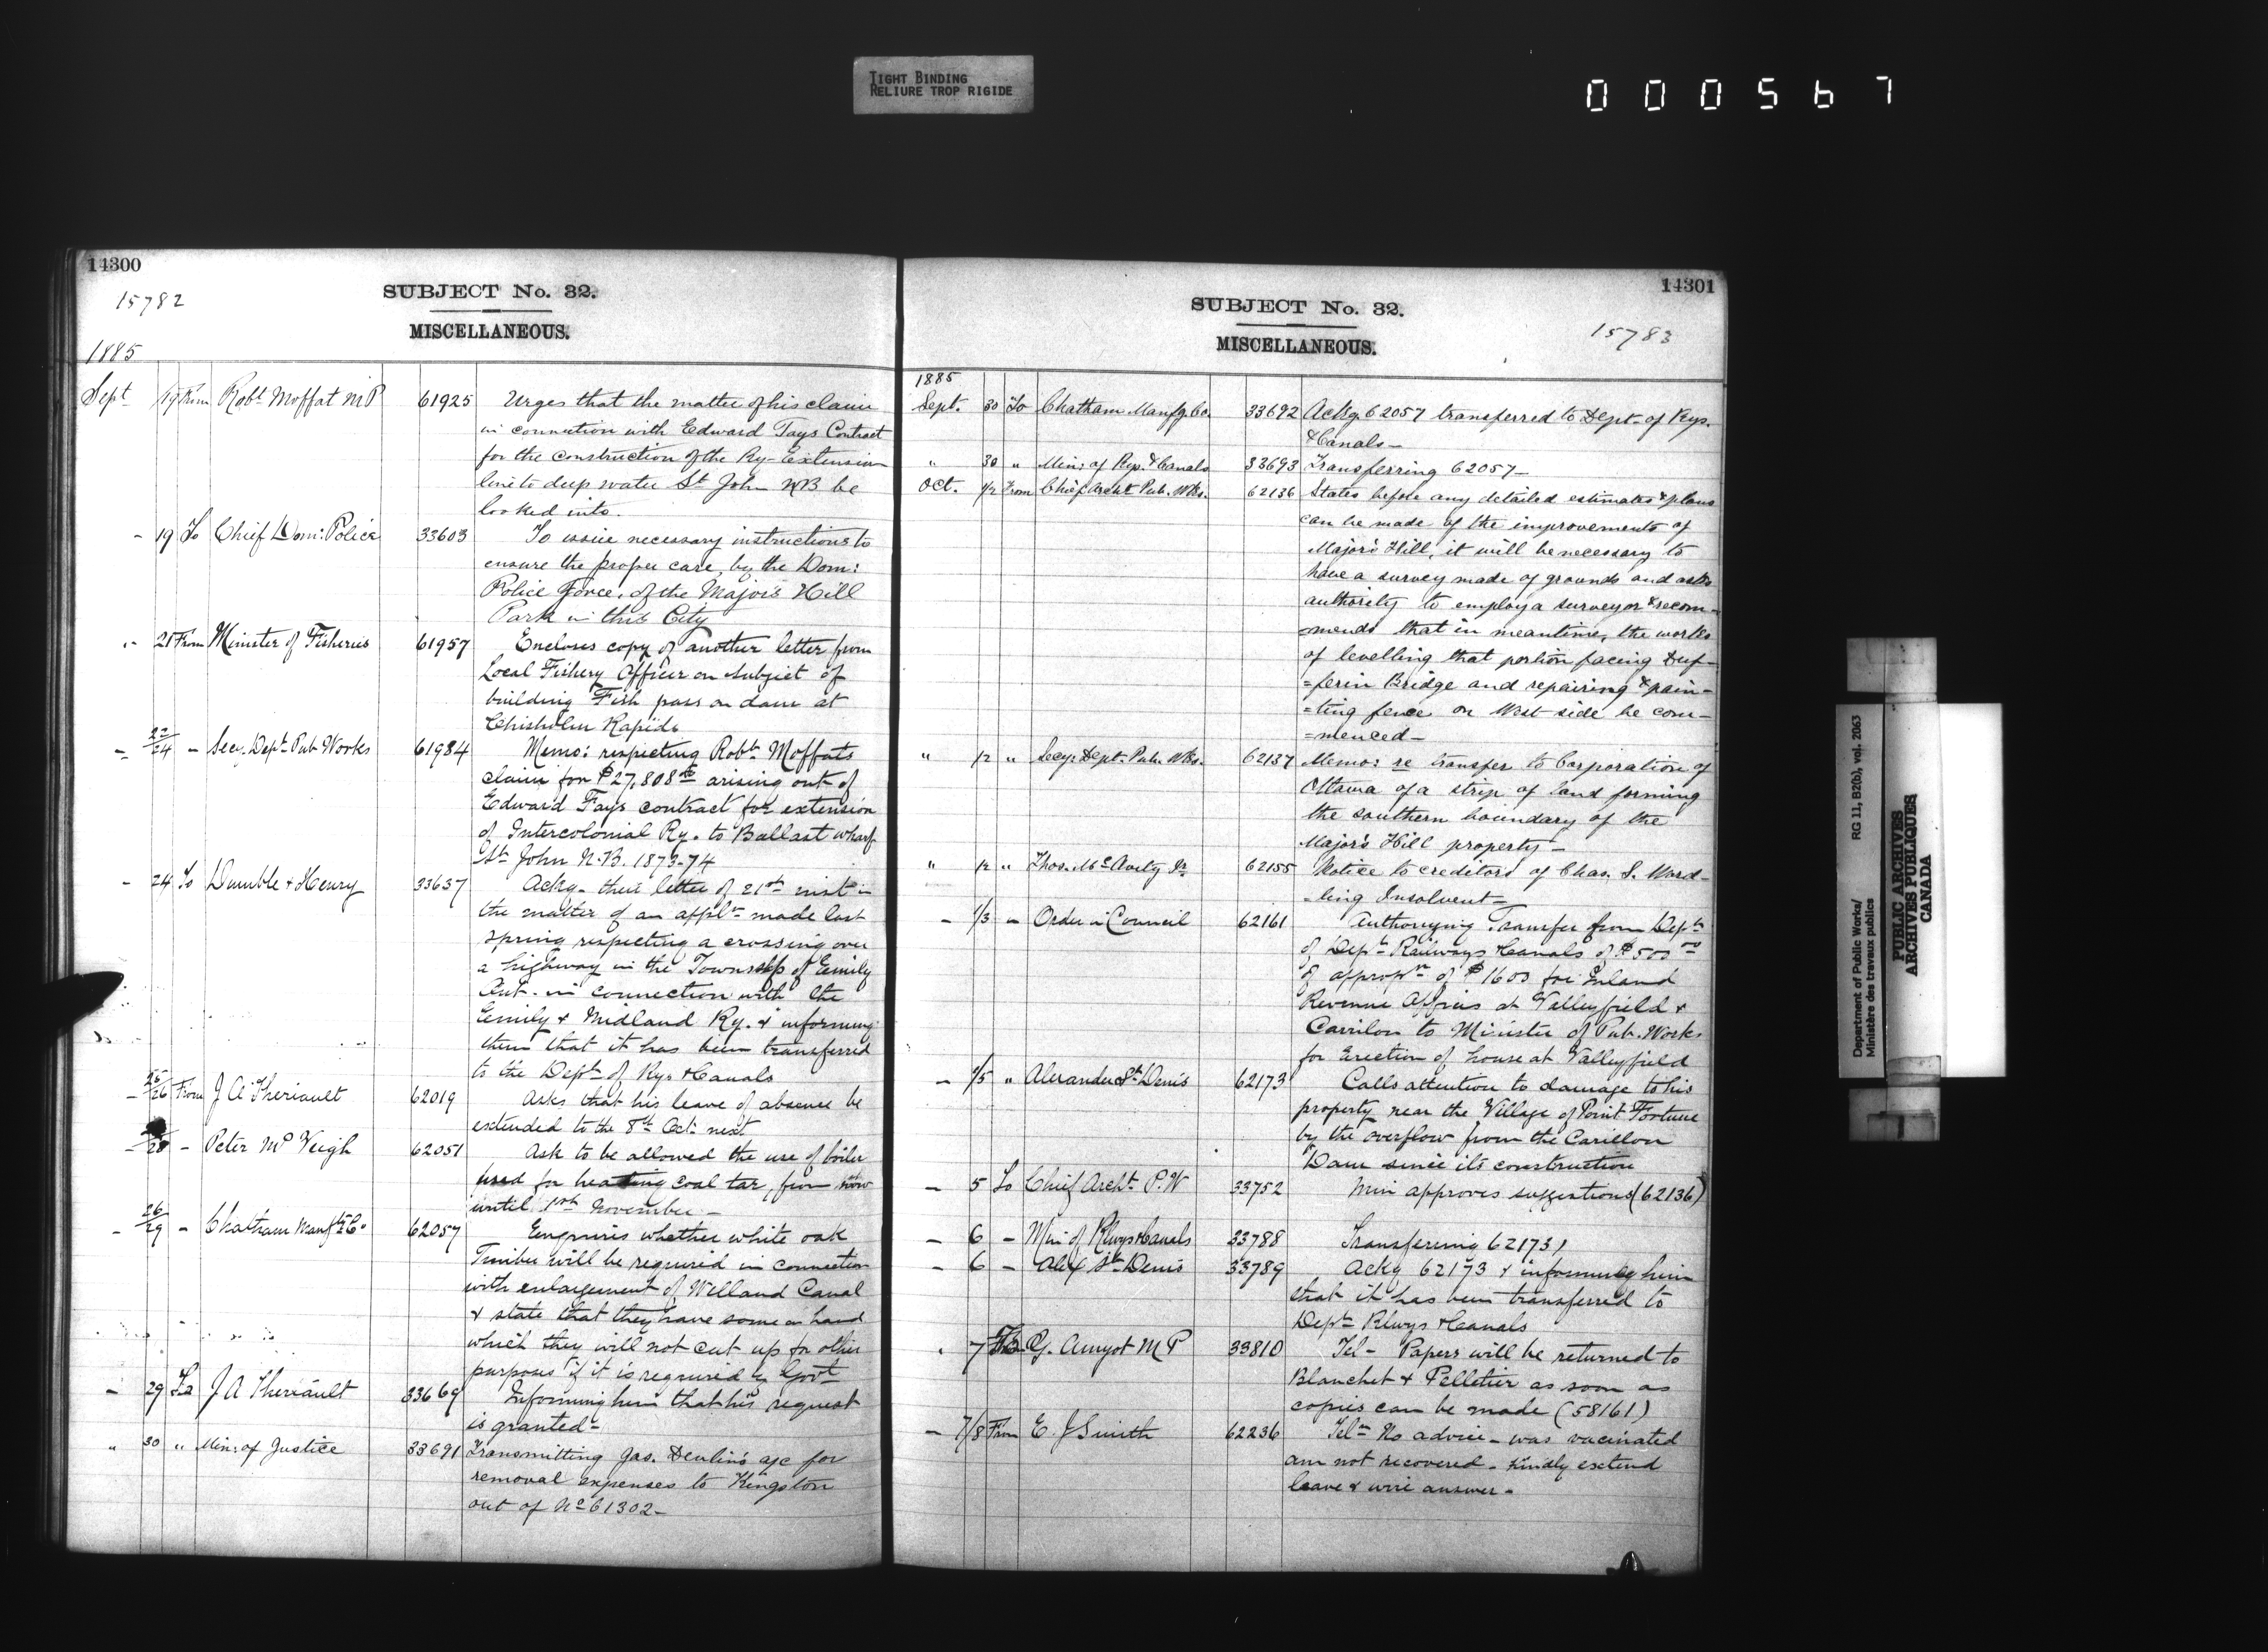 TIGHT BINDING
RELIURE TROP RIGIDE
000567
14300
15782
SUBJECT No. 32.
MISCELLANEOUS.
1885
Sept 19 From Robt Moffat MP 61925 Urges that the matter of his claim
in connection with Edward Fays Contract
for the construction of the Ry-Extension
line to deep water St John NB be
looked into.
- 19 To Chief Dom: Police 33603 To issue necessary instructions to
ensure the proper care, by the Dom:
Police force, of the Major's Hill
Park in this City
" 21 From Minister of Fisheries 61957 Encloses copy of another letter from
Local Fishery Officer on subject of
building Fish pass on dam at
Chisholm Rapids
- 22/24 - Secy. Dept Pub Works 61984 Memo: respecting Robt Moffats
claim for $27,808 arising out of
Edward Fays contract for extension
of Intercolonial Ry. to Ballast wharf
St John N.B. 1873-74
- 24 To Dumble & Henry 33637 Ackg. their letter of 21st inst in
the matter of an appln made last
spring respecting a crossing over
a highway in the Township of Emily
Ont. in connection with the
Emily & Midland Ry. & informing
them that it has been transferred
to the Dept of Rys & Canals
- 25/26 From J A Theriault 62019 Asks that his leave of absence be
extended to the 8th Oct: next
- 28 - Peter McVeigh 62051 Ask to be allowed the use of boiler
used for heating coal tar, from now
until 1st November -
- 26/29 - Chatham Manfg Co. 62057 Enquires whether white oak
Timber will be required in connection
with enlargement of Welland Canal
& state that they have some on hand
which they will not cut up for other
purposes if it is required by Govt
- 29 To J A Theriault 33669 Informing him that his request
is granted -
" 30 " Min: of Justice 33691 Transmitting Jas. Devlin's a/c for
removal expenses to Kingston
out of No 61302 -
14301
SUBJECT No. 32.
15783
MISCELLANEOUS.
1885
Sept. 30 To Chatham Manfg. Co. 33692 Ackg. 62057 transferred to Dept. of Rys.
& Canals -
" 30 " Min: of Rys. & Canals 33693 Transferring 62057 -
Oct. 1/2 From Chief Archt Pub. Wks. 62136 States before any detailed estimates & plans
can be made of the improvements of
Major's Hill, it will be necessary to
have a survey made of grounds and asks
authority to employ a surveyor & recom-
=mends that in meantime, the works
of levelling that portion facing Duf-
=ferin Bridge and repairing & pain-
=ting fence on West side be com-
=menced -
" 1/2 " Secy: Dept. Pub. Wks. 62137 Memo: re transfer to Corporation of
Ottawa of a strip of land forming
the southern boundary of the
Major's Hill property -
" 1/2 " Thos. McAvity Jr 62155 Notice to creditors of Chas. S. Word-
-ling Insolvent -
- 1/3 - Order in Council 62161 Authorizing Transfer from Dept
of Dept Railways & Canals of $500 00
of appropn of $1600 for Inland
Revenue Offices at Valleyfield &
Carrilon to Minister of Pub. Works
for Erection of house at Valleyfield
- 1/5 " Alexander St Denis 62173 Calls attention to damage to his
property near the Village of Point Fortune
by the overflow from the Carillon
Dam since its construction
- 5 To Chief Archt. P.W 33752 Min approves suggestions (62136)
- 6 - Min: of Rlwys & Canals 33788 Transferring 62173)
- 6 - Alex St Denis 33789 Ackg 62173 & informing him
that it has been transferred to
Dept Rlwys & Canals
" 7 To G. Amyot MP 33810 Tel - Papers will be returned to
Blanchet & Pelletier as soon as
copies can be made (58161)
- 7/8 From E. J Smith 62236 Tel - No advice - was vacinated
am not recovered - kindly extend
leave & wire answer -
Department of Public Works/ RG 11, B2(b), vol. 2063
Ministère des travaux publics
PUBLIC ARCHIVES
ARCHIVES PUBLIQUES
CANADA